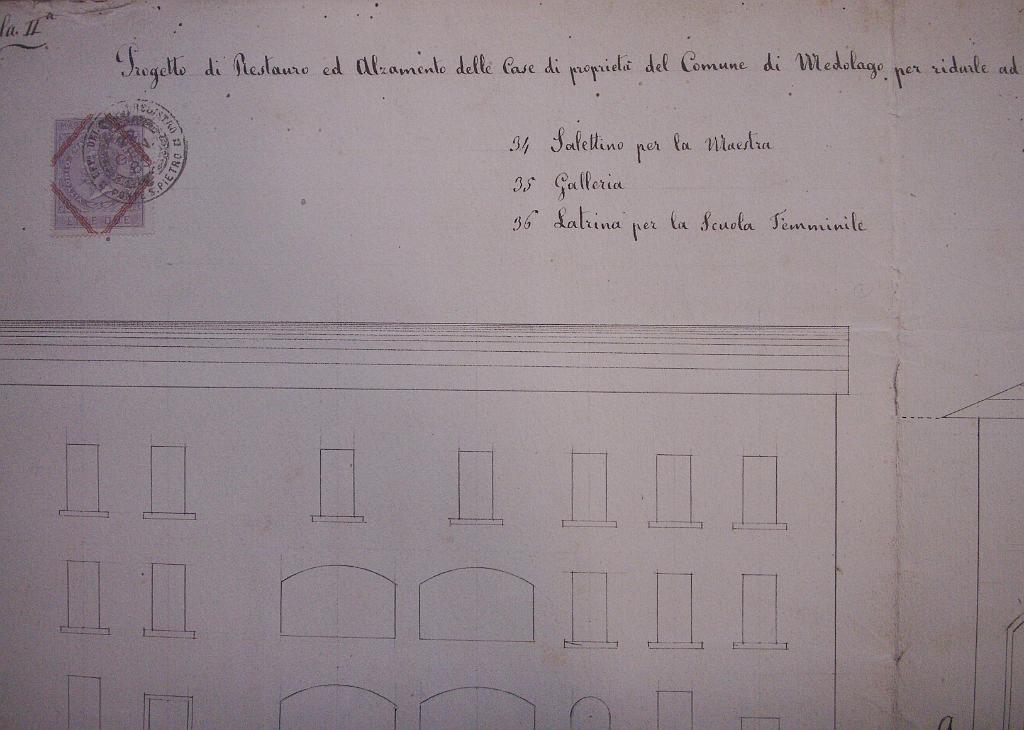 la. IIª
Progetto di Restauro ed Alzamento delle Case di proprietà del Comune di Medolago per ridurle ad
34 Salettino per la Maestra
35 Galleria
36 Latrina per la Scuola Femminile
REGISTRO DI
PONTE S. PIETRO
LIRE DUE
a